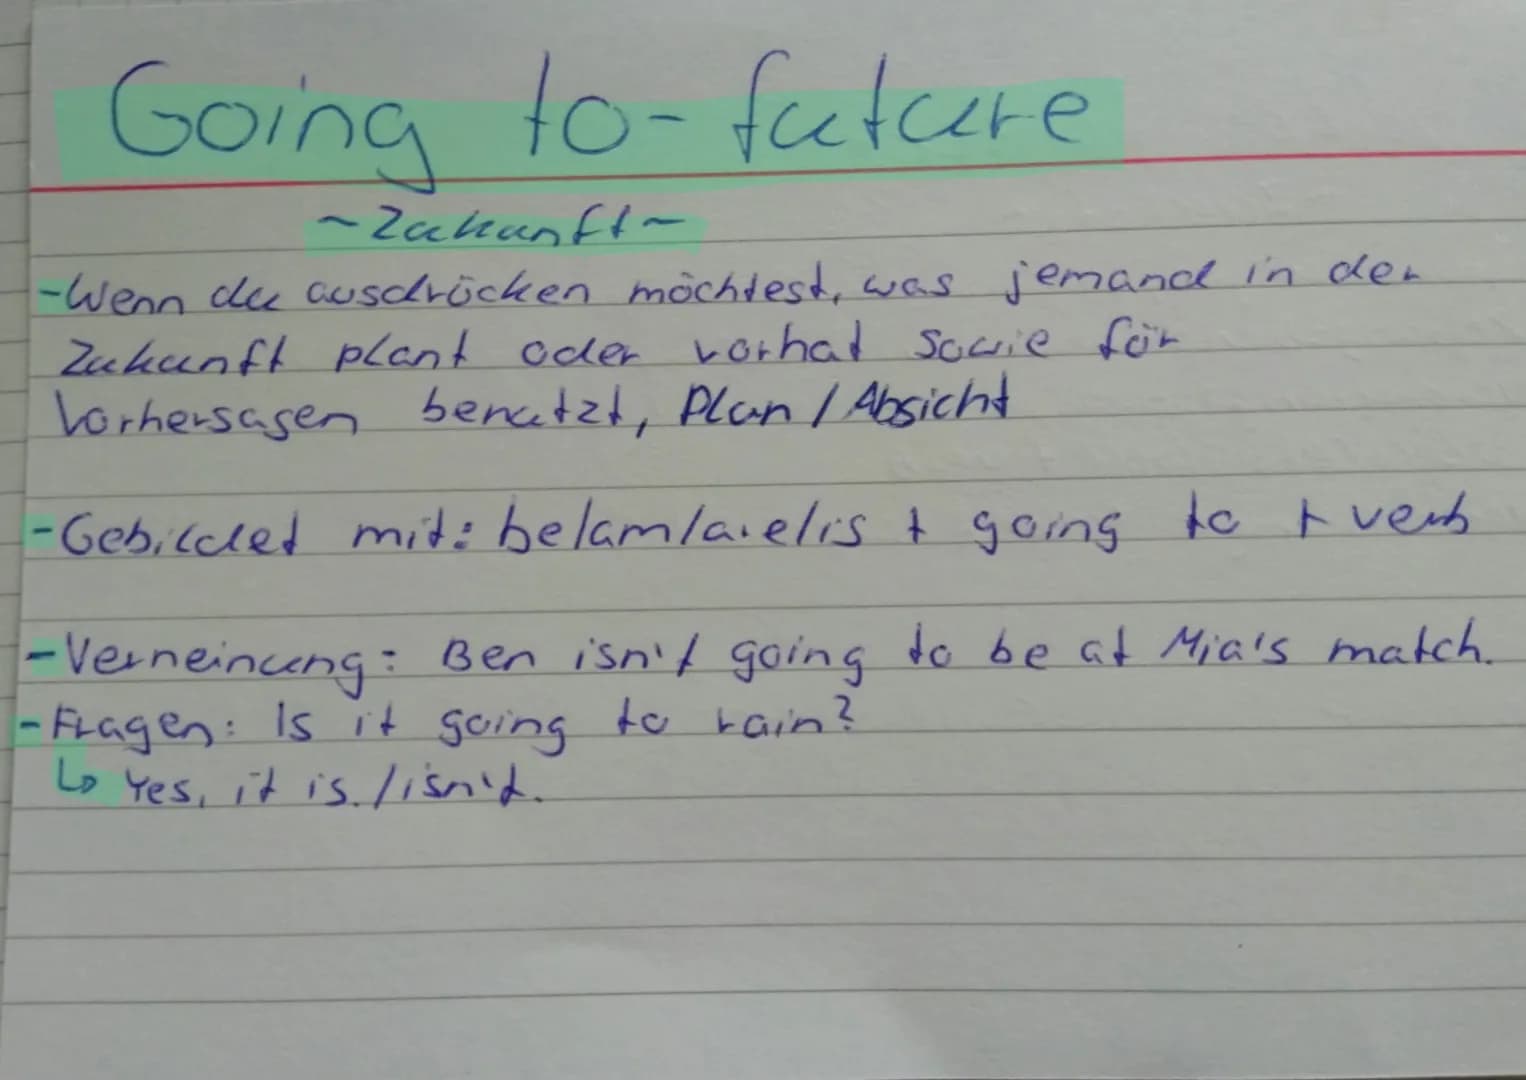 Going to-future
~Zukunft~
-Wenn du ausdrücken möchtest, was jemand in der
Zukunft plant oder vorhat sowie für
Vorhersagen benutzt, Plan / Absicht
-Gebildet mit: be/am/are/is + going to + verb
-Verneinung: Ben isn't going to be at Mia's match.
-Fragen: Is it going to rain?
↳ Yes, it is. / isn't.